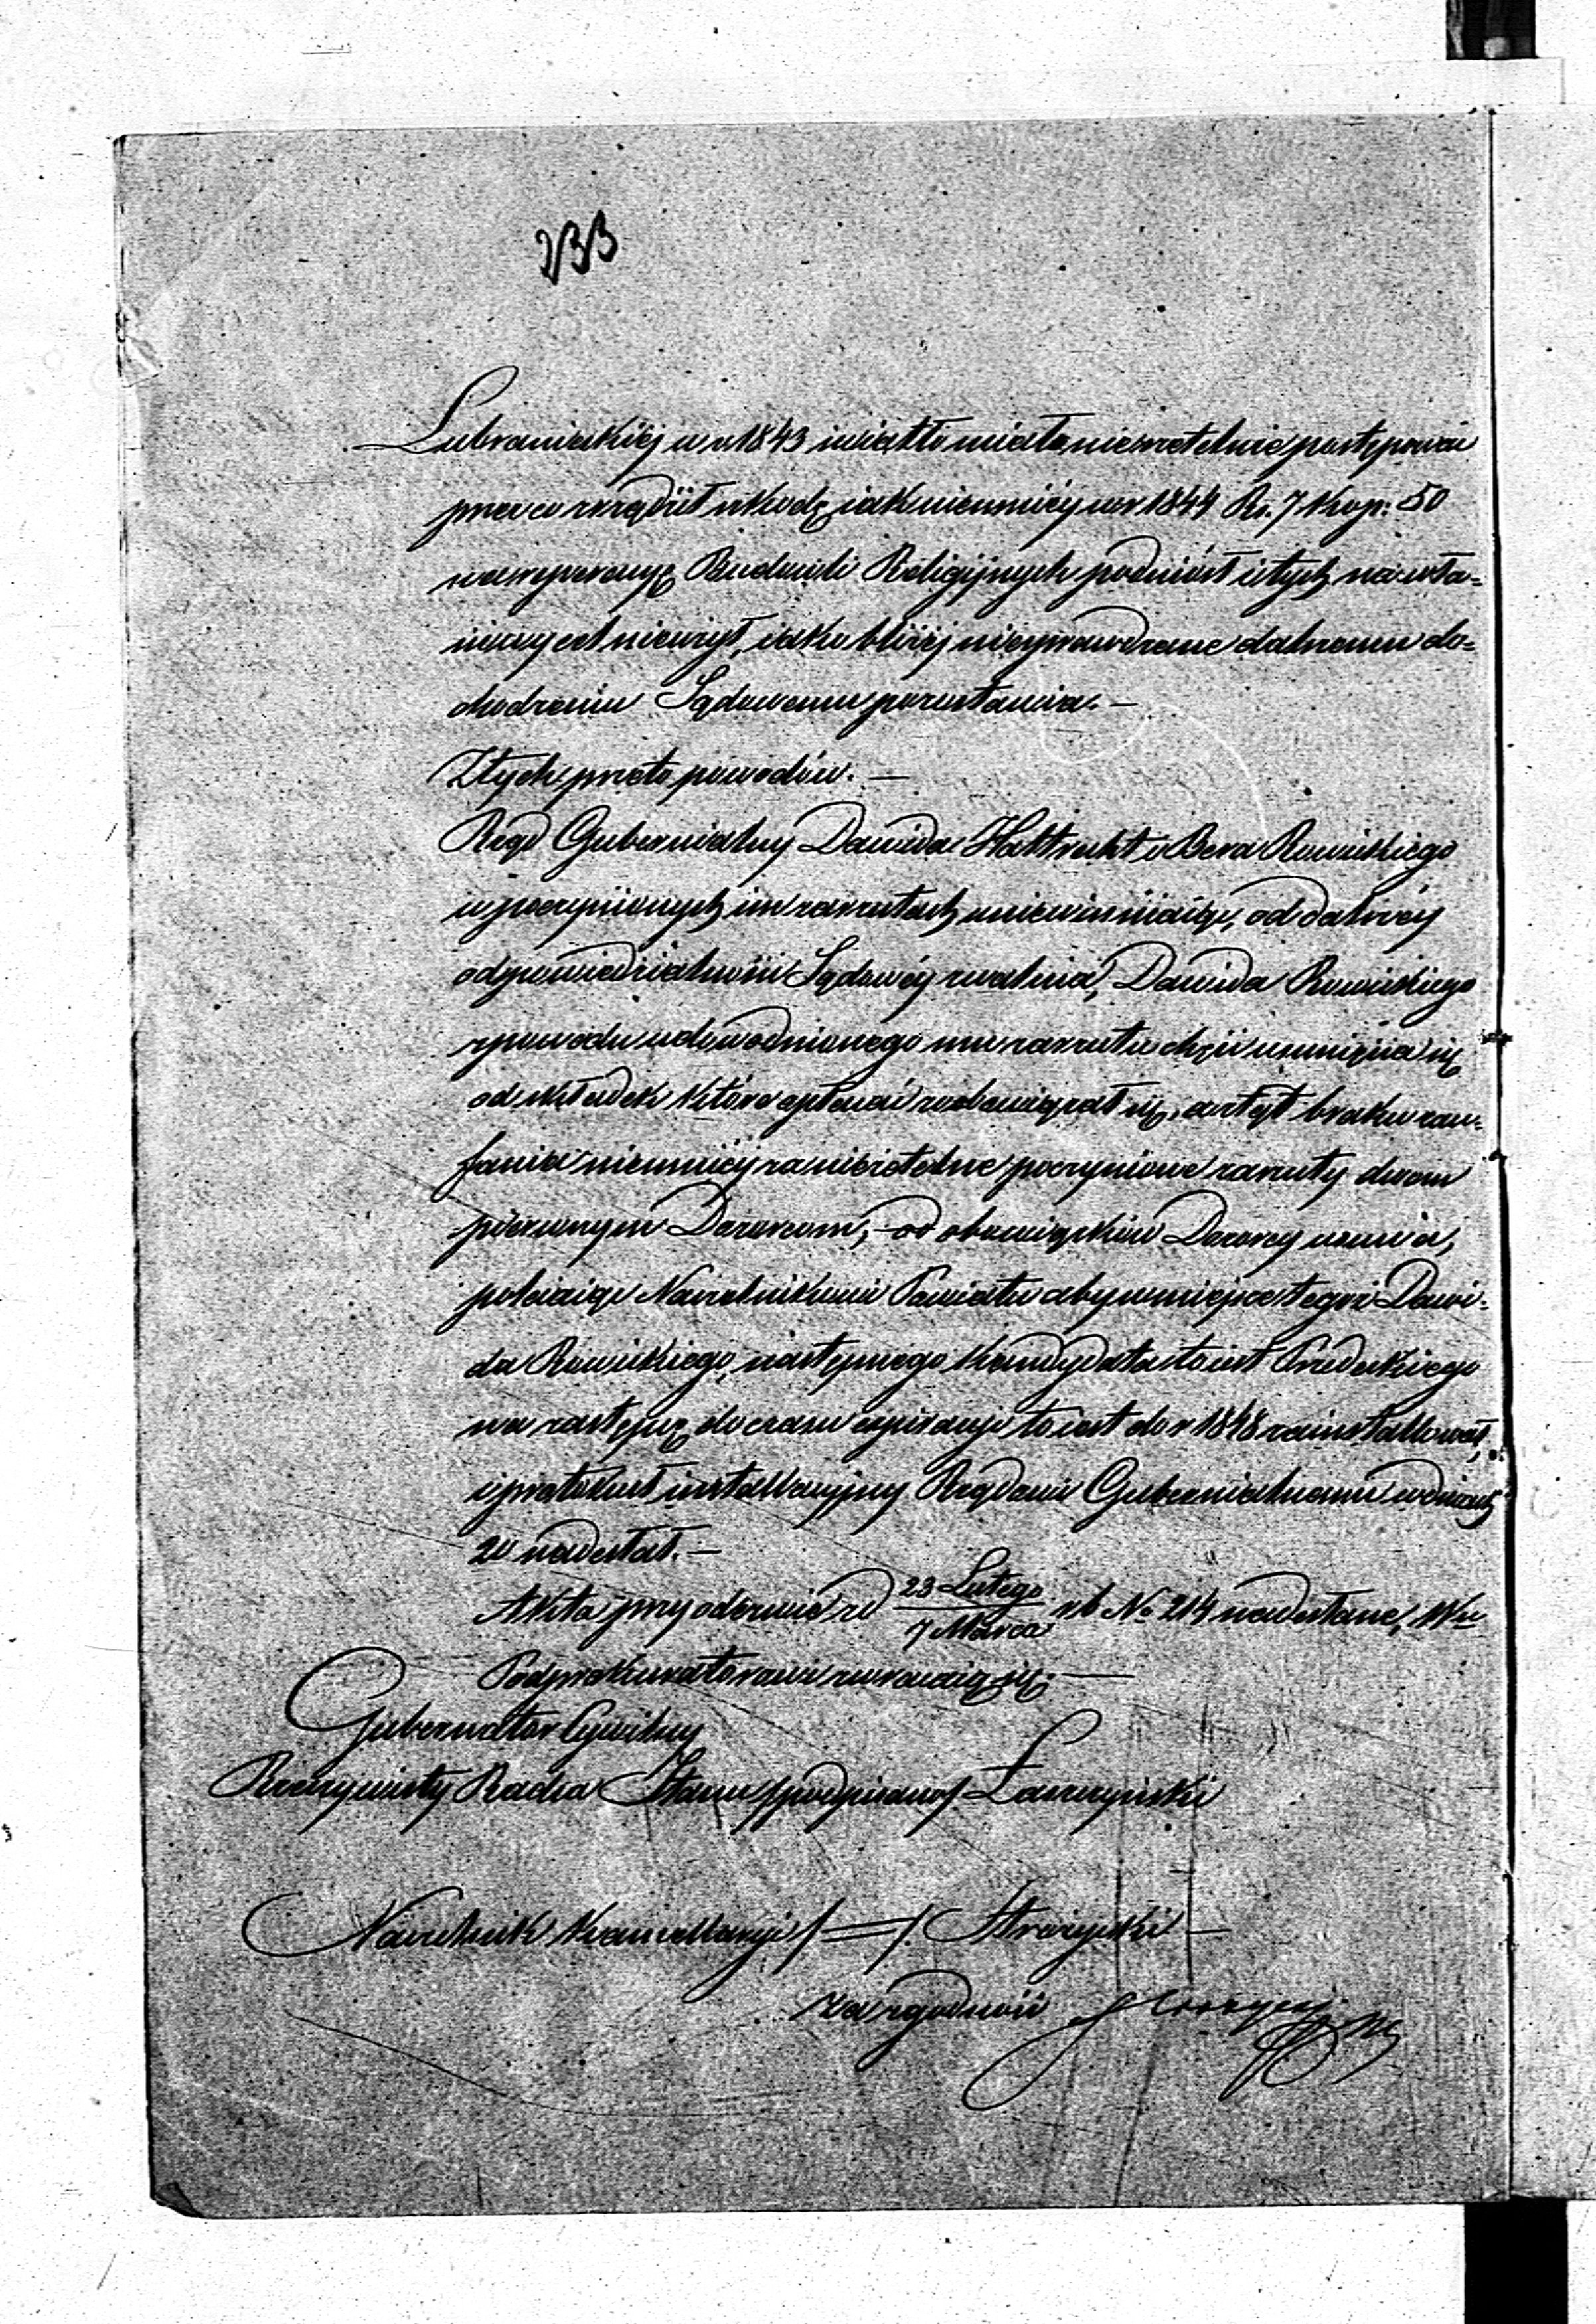 233
Lubranieckiéj w r 1843 iakoto miał nierzetelnie postępować
przez co zrządził szkodę iak niemniéj w r 1844 Rs. 7 Kop: 50
na reperacyę Budowli Religijnych podniósł i tych na wła=
ściwy cel nieużył, iako bliżéj niesprawdzone dalszemu do=
chodzeniu Sądowemu pozostawia. —
Z tych przeto powodów. —
Rząd Gubernialny Dawida Haltrecht i Bera Rawickiego
w poczynionych im zarzutach uniewinniaiąc, od dalszéj
odpowiedzialności Sądowéj uwalnia, Dawida Rawickiego
z powodu udowodnionego mu zarzutu chęci usunięcia się
od składek które opłacać zobowiązał się, ztąd braku zau=
fania niemniéj za nieistotne poczynione zarzuty dwom
pierwszym Dozorcom, od obowiązków Dozorcy usuwa,
polecaiąc Naczelnikowi Powiatu aby w miejsce tegoż Dawi=
da Rawickiego, następnego Kandydata to iest Przedeckiego
na zastępcę do czasu expiracyi to iest do r 1848 zainstallował,
i protokuł installacyjny Rządowi Gubernialnemu w dniach
20 nadesłał. —
Akta przy odezwie z d 23 Lutego / 7 Marca r b No 214 nadesłane, JWu
Podprokuratorowi zwracaią się. —
Gubernator Cywilny
Rzeczywisty Radca Stanu /podpisano/ Łaszczyński
Naczelnik Kancellaryi /=/ Strożycki —
Za zgodność